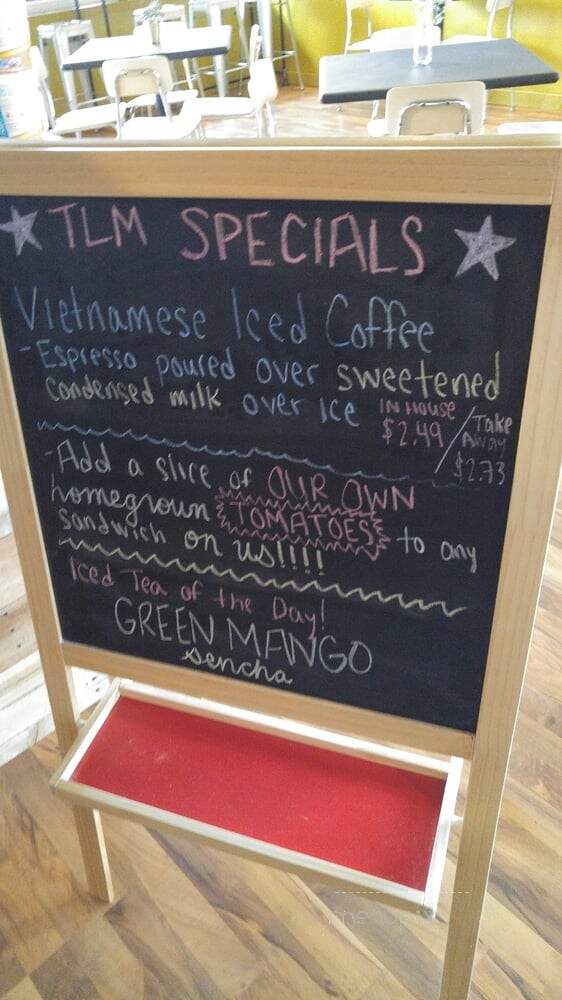 TLM SPECIALS
Vietnamese Iced Coffee
- Espresso poured over sweetened
condensed milk over ice IN HOUSE $2.49 / Take Away $2.73
- Add a slice of OUR OWN
homegrown TOMATOES to any
sandwich on us!!!!
Iced Tea of the Day!
GREEN MANGO
sencha